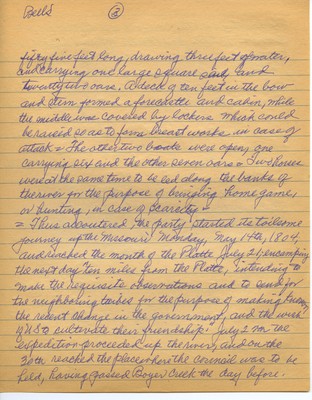 Bells
3
fifty five feet long, drawing three feet of water,
and carrying one large square sail and
twenty two oars. A deck of ten feet in the bow
and stern formed a forecastle and cabin, while
the middle was covered by lockers which could
be raised so as to form breast works in case of
attack = The other two boats were open, one
carrying six and the other seven oars = Two horses
were at the same time to be led along the banks of
the river for the purpose of bringing home game,
or hunting, in case of scarcity =
= Thus accoutered the party started its toilsome
journey up the Missouri Monday, May 14th, 1804,
and reached the mouth of the Platte July 21; encamping
the next day ten miles from the Platte, "intending to
make the requisite observations and to send for
the neighboring tribes for the purpose of making known
the recent change in the government, and the wish
of U S to cultivate their friendship". July 27th the
expedition proceeded up the river, and on the
30th reached the place where the council was to be
held, having passed Boyer Creek the day before.